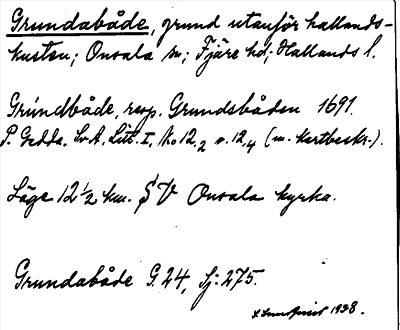 Grundabåde, grund utanför hallands-
kusten; Onsala sn; Fjäre hd; Hallands l.
Grúndbåde, resp. Grundsbåden 1691.
P. Gedda. Sv. A. Litt. I, No 12,2 o. 12,4 (m. kartbeskr.).
Läge 12 1/2 km. S V Onsala kyrka.
Grundabåde G. 24, Sj: 275.
1938.